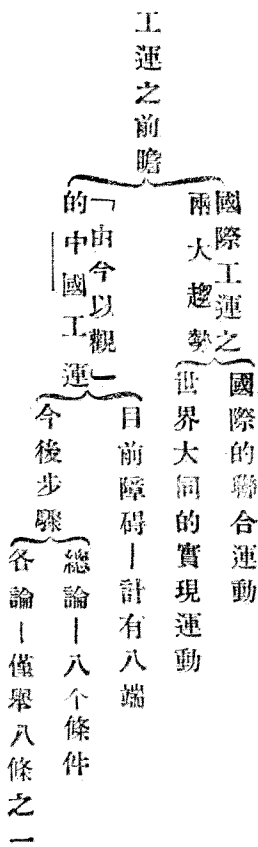 工運之前瞻
國際工運之
兩大趨勢
國際的聯合運動
世界大同的實現運動
「由今以觀」
的中國工運
目前障碍—計有八端
今後步驟
總論—八个條件
各論—僅舉八條之一